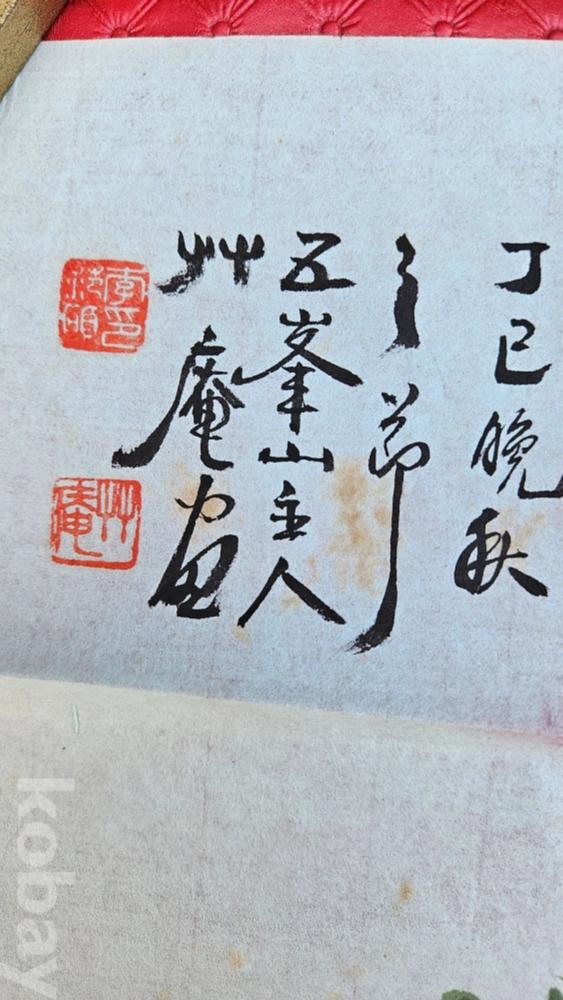 丁巳晩秋
之節
五峯山主人
艸庵画
李印
艸庵
kobay